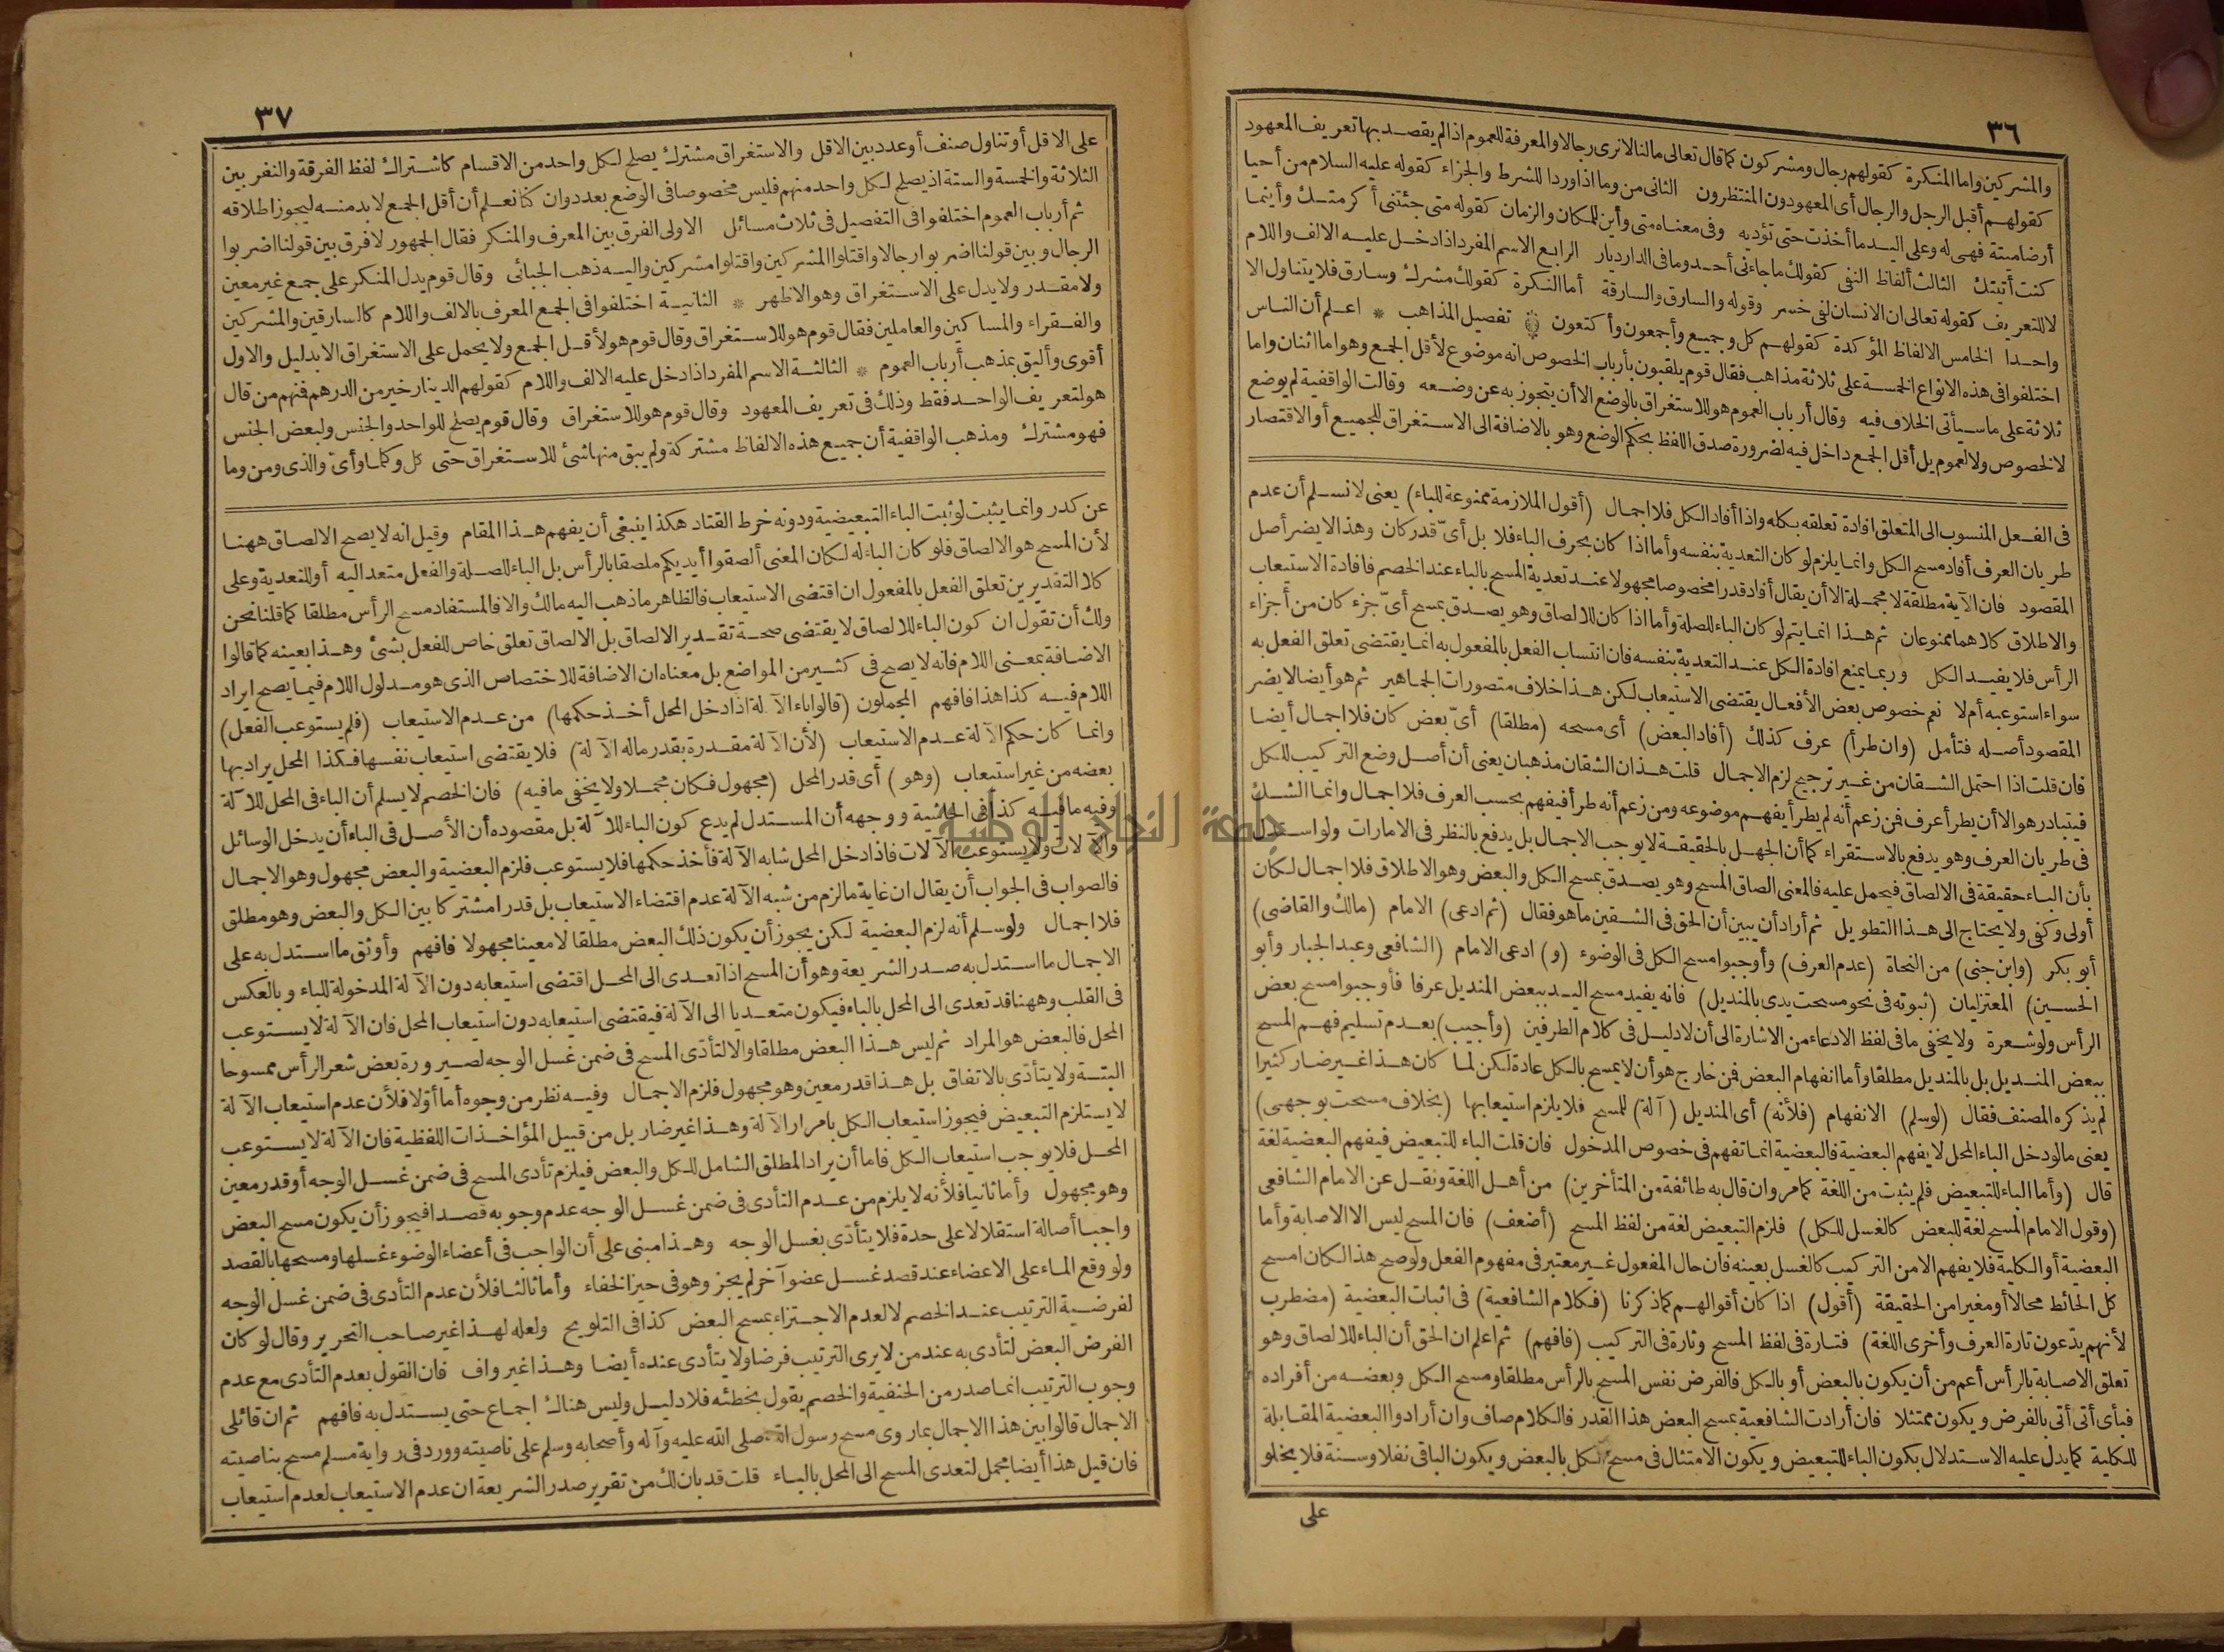 ٣٦
والمشركين واما المنكرة كقولهم رجال ومشركون كما قال تعالى مالنا لانرى رجالا والمعرفة للعموم اذا لم يقصد بها تعريف المعهود
كقولهم أقبل الرجل والرجال أى المعهودون المنتظرون الثانى من وما اذا وردا للشرط والجزاء كقوله عليه السلام من أحيا
أرضا ميتة فهى له وعلى اليد ما أخذت حتى تؤديه وفى معناه متى وأين للمكان والزمان كقوله متى جئتنى أكرمتك وأينما
كنت أتيتك الثالث ألفاظ النفى كقولك ما جاءنى أحد وما فى الدار ديار الرابع الاسم المفرد اذا دخل عليه الالف واللام
لا للتعريف كقوله تعالى ان الانسان لفى خسر وقوله والسارق والسارقة أما النكرة كقولك مشرك وسارق فلا يتناول الا
واحدا الخامس الالفاظ المؤكدة كقولهم كل وجميع وأجمعون وأكتعون تفصيل المذاهب * اعلم أن الناس
اختلفوا فى هذه الانواع الخمسة على ثلاثة مذاهب فقال قوم يلقبون بأرباب الخصوص انه موضوع لأقل الجمع وهو اما اثنان واما
ثلاثة على ما سيأتى الخلاف فيه وقال أرباب العموم هو للاستغراق بالوضع الا أن يتجوز به عن وضعه وقالت الواقفية لم يوضع
لا لخصوص ولا لعموم بل أقل الجمع داخل فيه لضرورة صدق اللفظ بحكم الوضع وهو بالاضافة الى الاستغراق للجميع أو الاقتصار
فى الفعل المنسوب الى المتعلق افادة تعلقه بكله واذا أفاد الكل فلا اجمال (أقول الملازمة ممنوعة للباء) يعنى لا نسلم أن عدم
طريان العرف أفاد مسح الكل وانما يلزم لو كان التعدية بنفسه وأما اذا كان بحرف الباء فلا بل أىّ قدر كان وهذا لا يضر أصل
المقصود فان الآية مطلقة لا مجملة الا أن يقال أفاد قدرا مخصوصا مجهولا عند تعدية المسح بالباء عند الخصم فافادة الاستيعاب
والاطلاق كلاهما ممنوعان ثم هذا انما يتم لو كان الباء للصلة وأما اذا كان للالصاق وهو يصدق بمسح أىّ جزء كان من أجزاء
الرأس فلا يفيد الكل وربما يمنع افادة الكل عند التعدية بنفسه فان انتساب الفعل بالمفعول به انما يقتضى تعلق الفعل به
سواء استوعبه أم لا نعم خصوص بعض الأفعال يقتضى الاستيعاب لكن هذا خلاف متصورات الجماهير ثم هو أيضا لا يضر
المقصود أصله فتأمل (وان طرأ) عرف كذلك (أفاد البعض) أى مسحه (مطلقا) أىّ بعض كان فلا اجمال أيضا
فان قلت اذا احتمل الشقان من غير ترجيح لزم الاجمال قلت هذان الشقان مذهبان يعنى أن أصل وضع التركيب للكل
فيتبادر هو الا أن يطرأ عرف فمن زعم أنه لم يطرأ يفهم موضوعه ومن زعم أنه طرأ فيفهم بحسب العرف فلا اجمال وانما الشك
فى طريان العرف وهو يدفع بالاستقراء كما أن الجهل بالحقيقة لا يوجب الاجمال بل يدفع بالنظر فى الامارات ولو استدل
بأن الباء حقيقة فى الالصاق فيحمل عليه فالمعنى الصاق المسح وهو يصدق بمسح الكل والبعض وهو الاطلاق فلا اجمال لكان
أولى وكفى ولا يحتاج الى هذا التطويل ثم أراد أن يبين أن الحق فى الشقين ما هو فقال (ثم ادعى) الامام (مالك والقاضى)
أبو بكر (وابن جنى) من النحاة (عدم العرف) وأوجبوا مسح الكل فى الوضوء (و) ادعى الامام (الشافعى وعبد الجبار وأبو
الحسين) المعتزليان (ثبوته فى نحو مسحت يدى بالمنديل) فانه يفيد مسح اليد ببعض المنديل عرفا فأوجبوا مسح بعض
الرأس ولو شعرة ولا يخفى ما فى لفظ الادعاء من الاشارة الى أن لا دليل فى كلام الطرفين (وأجيب) بعدم تسليم فهم المسح
ببعض المنديل بل بالمنديل مطلقا وأما انفهام البعض فمن خارج هو أن لا يمسح بالكل عادة لكن لما كان هذا غير ضار كثيرا
لم يذكره المصنف فقال (لو سلم) الانفهام (فلأنه) أى المنديل (آلة) للمسح فلا يلزم استيعابها (بخلاف مسحت بوجهى)
يعنى مالو دخل الباء المحل لا يفهم البعضية فالبعضية انما تفهم فى خصوص المدخول فان قلت الباء للتبعيض فيفهم البعضية لغة
قال (وأما الباء للتبعيض فلم يثبت من اللغة كما مر وان قال به طائفة من المتأخرين) من أهل اللغة ونقل عن الامام الشافعى
(وقول الامام المسح لغة للبعض كالغسل للكل) فلزم التبعيض لغة من لفظ المسح (أضعف) فان المسح ليس الا الاصابة وأما
البعضية أو الكلية فلا يفهم الا من التركيب كالغسل بعينه فان حال المفعول غير معتبر فى مفهوم الفعل ولو صح هذا لكان امسح
كل الحائط محالا أو مغيرا من الحقيقة (أقول) اذا كان أقوالهم كما ذكرنا (فكلام الشافعية) فى اثبات البعضية (مضطرب
لأنهم يدّعون تارة العرف وأخرى اللغة) فتارة فى لفظ المسح وتارة فى التركيب (فافهم) ثم اعلم ان الحق أن الباء للالصاق وهو
تعلق الاصابة بالرأس أعم من أن يكون بالبعض أو بالكل فالفرض نفس المسح بالرأس مطلقا ومسح الكل وبعضه من أفراده
فبأى أتى أتى بالفرض ويكون ممتثلا فان أرادت الشافعية بمسح البعض هذا القدر فالكلام صاف وان أرادوا البعضية المقابلة
للكلية كما يدل عليه الاستدلال بكون الباء للتبعيض ويكون الامتثال فى مسح الكل بالبعض ويكون الباقى نفلا وسنة فلا يخلو
على
٣٧
على الاقل أو تناول صنف أو عدد بين الاقل والاستغراق مشترك يصلح لكل واحد من الاقسام كاشتراك لفظ الفرقة والنفر بين
الثلاثة والخمسة والستة اذ يصلح لكل واحد منهم فليس مخصوصا فى الوضع بعدد وان كنا نعلم أن أقل الجمع لا بد منه ليجوز اطلاقه
ثم أرباب العموم اختلفوا فى التفصيل فى ثلاث مسائل الاولى الفرق بين المعرف والمنكر فقال الجمهور لا فرق بين قولنا اضربوا
الرجال وبين قولنا اضربوا رجالا واقتلوا المشركين واقتلوا مشركين واليه ذهب الجبائى وقال قوم يدل المنكر على جمع غير معين
ولا مقدر ولا يدل على الاستغراق وهو الاظهر * الثانية اختلفوا فى الجمع المعرف بالالف واللام كالسارقين والمشركين
والفقراء والمساكين والعاملين فقال قوم هو للاستغراق وقال قوم هو لأقل الجمع ولا يحمل على الاستغراق الا بدليل والاول
أقوى وأليق بمذهب أرباب العموم * الثالثة الاسم المفرد اذا دخل عليه الالف واللام كقولهم الدينار خير من الدرهم فمنهم من قال
هو لتعريف الواحد فقط وذلك فى تعريف المعهود وقال قوم هو للاستغراق وقال قوم يصلح للواحد والجنس ولبعض الجنس
فهو مشترك ومذهب الواقفية أن جميع هذه الالفاظ مشتركة ولم يبق منها شئ للاستغراق حتى كل وكلما وأى والذى ومن وما
عن كدر وانما يثبت لو ثبت الباء التبعيضية ودونه خرط القتاد هكذا ينبغى أن يفهم هذا المقام وقيل انه لا يصح الالصاق ههنا
لأن المسح هو الالصاق فلو كان الباء له لكان المعنى ألصقوا أيديكم ملصقا بالرأس بل الباء للصلة والفعل متعد اليه أو للتعدية وعلى
كلا التقديرين تعلق الفعل بالمفعول ان اقتضى الاستيعاب فالظاهر ما ذهب اليه مالك والا فالمستفاد مسح الرأس مطلقا كما قلنا نحن
ولك أن تقول ان كون الباء للالصاق لا يقتضى صحة تقدير الالصاق بل الالصاق تعلق خاص للفعل بشئ وهذا بعينه كما قالوا
الاضافة بمعنى اللام فانه لا يصح فى كثير من المواضع بل معناه ان الاضافة للاختصاص الذى هو مدلول اللام فيما يصح ايراد
اللام فيه كذا هذا فافهم المجملون (قالوا باء الآلة اذا دخل المحل أخذ حكمها) من عدم الاستيعاب (فلم يستوعب الفعل)
وانما كان حكم الآلة عدم الاستيعاب (لأن الآلة مقدرة بقدر ما له الآلة) فلا يقتضى استيعاب نفسها فكذا المحل يراد بها
بعضه من غير استيعاب (وهو) أى قدر المحل (مجهول فكان مجملا ولا يخفى ما فيه) فان الخصم لا يسلم أن الباء فى المحل للآلة
وفيه ما فيه كذا فى الحاشية ووجهه أن المستدل لم يدع كون الباء للآلة بل مقصوده أن الأصل فى الباء أن يدخل الوسائل
والآلات ولا يستوعب الآلات فاذا دخل المحل شابه الآلة فأخذ حكمها فلا يستوعب فلزم البعضية والبعض مجهول وهو الاجمال
فالصواب فى الجواب أن يقال ان غاية ما لزم من شبه الآلة عدم اقتضاء الاستيعاب بل قدرا مشتركا بين الكل والبعض وهو مطلق
فلا اجمال ولو سلم أنه لزم البعضية لكن يجوز أن يكون ذلك البعض مطلقا لا معينا مجهولا فافهم وأوثق ما استدل به على
الاجمال ما استدل به صدر الشريعة وهو أن المسح اذا تعدى الى المحل اقتضى استيعابه دون الآلة المدخولة للباء وبالعكس
فى القلب وههنا قد تعدى الى المحل بالباء فيكون متعديا الى الآلة فيقتضى استيعابه دون استيعاب المحل فان الآلة لا يستوعب
المحل فالبعض هو المراد ثم ليس هذا البعض مطلقا والا لتأدى المسح فى ضمن غسل الوجه لصيرورة بعض شعر الرأس ممسوحا
البتة ولا يتأدّى بالاتفاق بل هذا قدر معين وهو مجهول فلزم الاجمال وفيه نظر من وجوه أما أوّلا فلأن عدم استيعاب الآلة
لا يستلزم التبعيض فيجوز استيعاب الكل بامرار الآلة وهذا غير ضار بل من قبيل المؤاخذات اللفظية فان الآلة لا يستوعب
المحل فلا يوجب استيعاب الكل فاما أن يراد المطلق الشامل للكل والبعض فيلزم تأدى المسح فى ضمن غسل الوجه أو قدر معين
وهو مجهول وأما ثانيا فلأنه لا يلزم من عدم التأدى فى ضمن غسل الوجه عدم وجوبه قصدا فيجوز أن يكون مسح البعض
واجبا أصالة استقلالا على حدة فلا يتأدّى بغسل الوجه وهذا مبنى على أن الواجب فى أعضاء الوضوء غسلها ومسحها بالقصد
ولو وقع الماء على الاعضاء عند قصد غسل عضو آخر لم يجز وهو فى حيز الخفاء وأما ثالثا فلأن عدم التأدى فى ضمن غسل الوجه
لفرضية الترتيب عند الخصم لا لعدم الاجتزاء بمسح البعض كذا فى التلويح ولعله لهذا غير صاحب التحرير وقال لو كان
الفرض البعض لتأدى به عند من لا يرى الترتيب فرضا ولا يتأدى عنده أيضا وهذا غير واف فان القول بعدم التأدى مع عدم
وجوب الترتيب انما صدر من الحنفية والخصم يقول بخطئه فلا دليل وليس هناك اجماع حتى يستدل به فافهم ثم ان قائلى
الاجمال قالوا بين هذا الاجمال بما روى مسح رسول الله صلى الله عليه وآله وأصحابه وسلم على ناصيته وورد فى رواية مسلم مسح بناصيته
فان قيل هذا أيضا مجمل لتعدى المسح الى المحل بالباء قلت قد بان لك من تقرير صدر الشريعة ان عدم الاستيعاب لعدم استيعاب
جامعة النجاح الوطنية